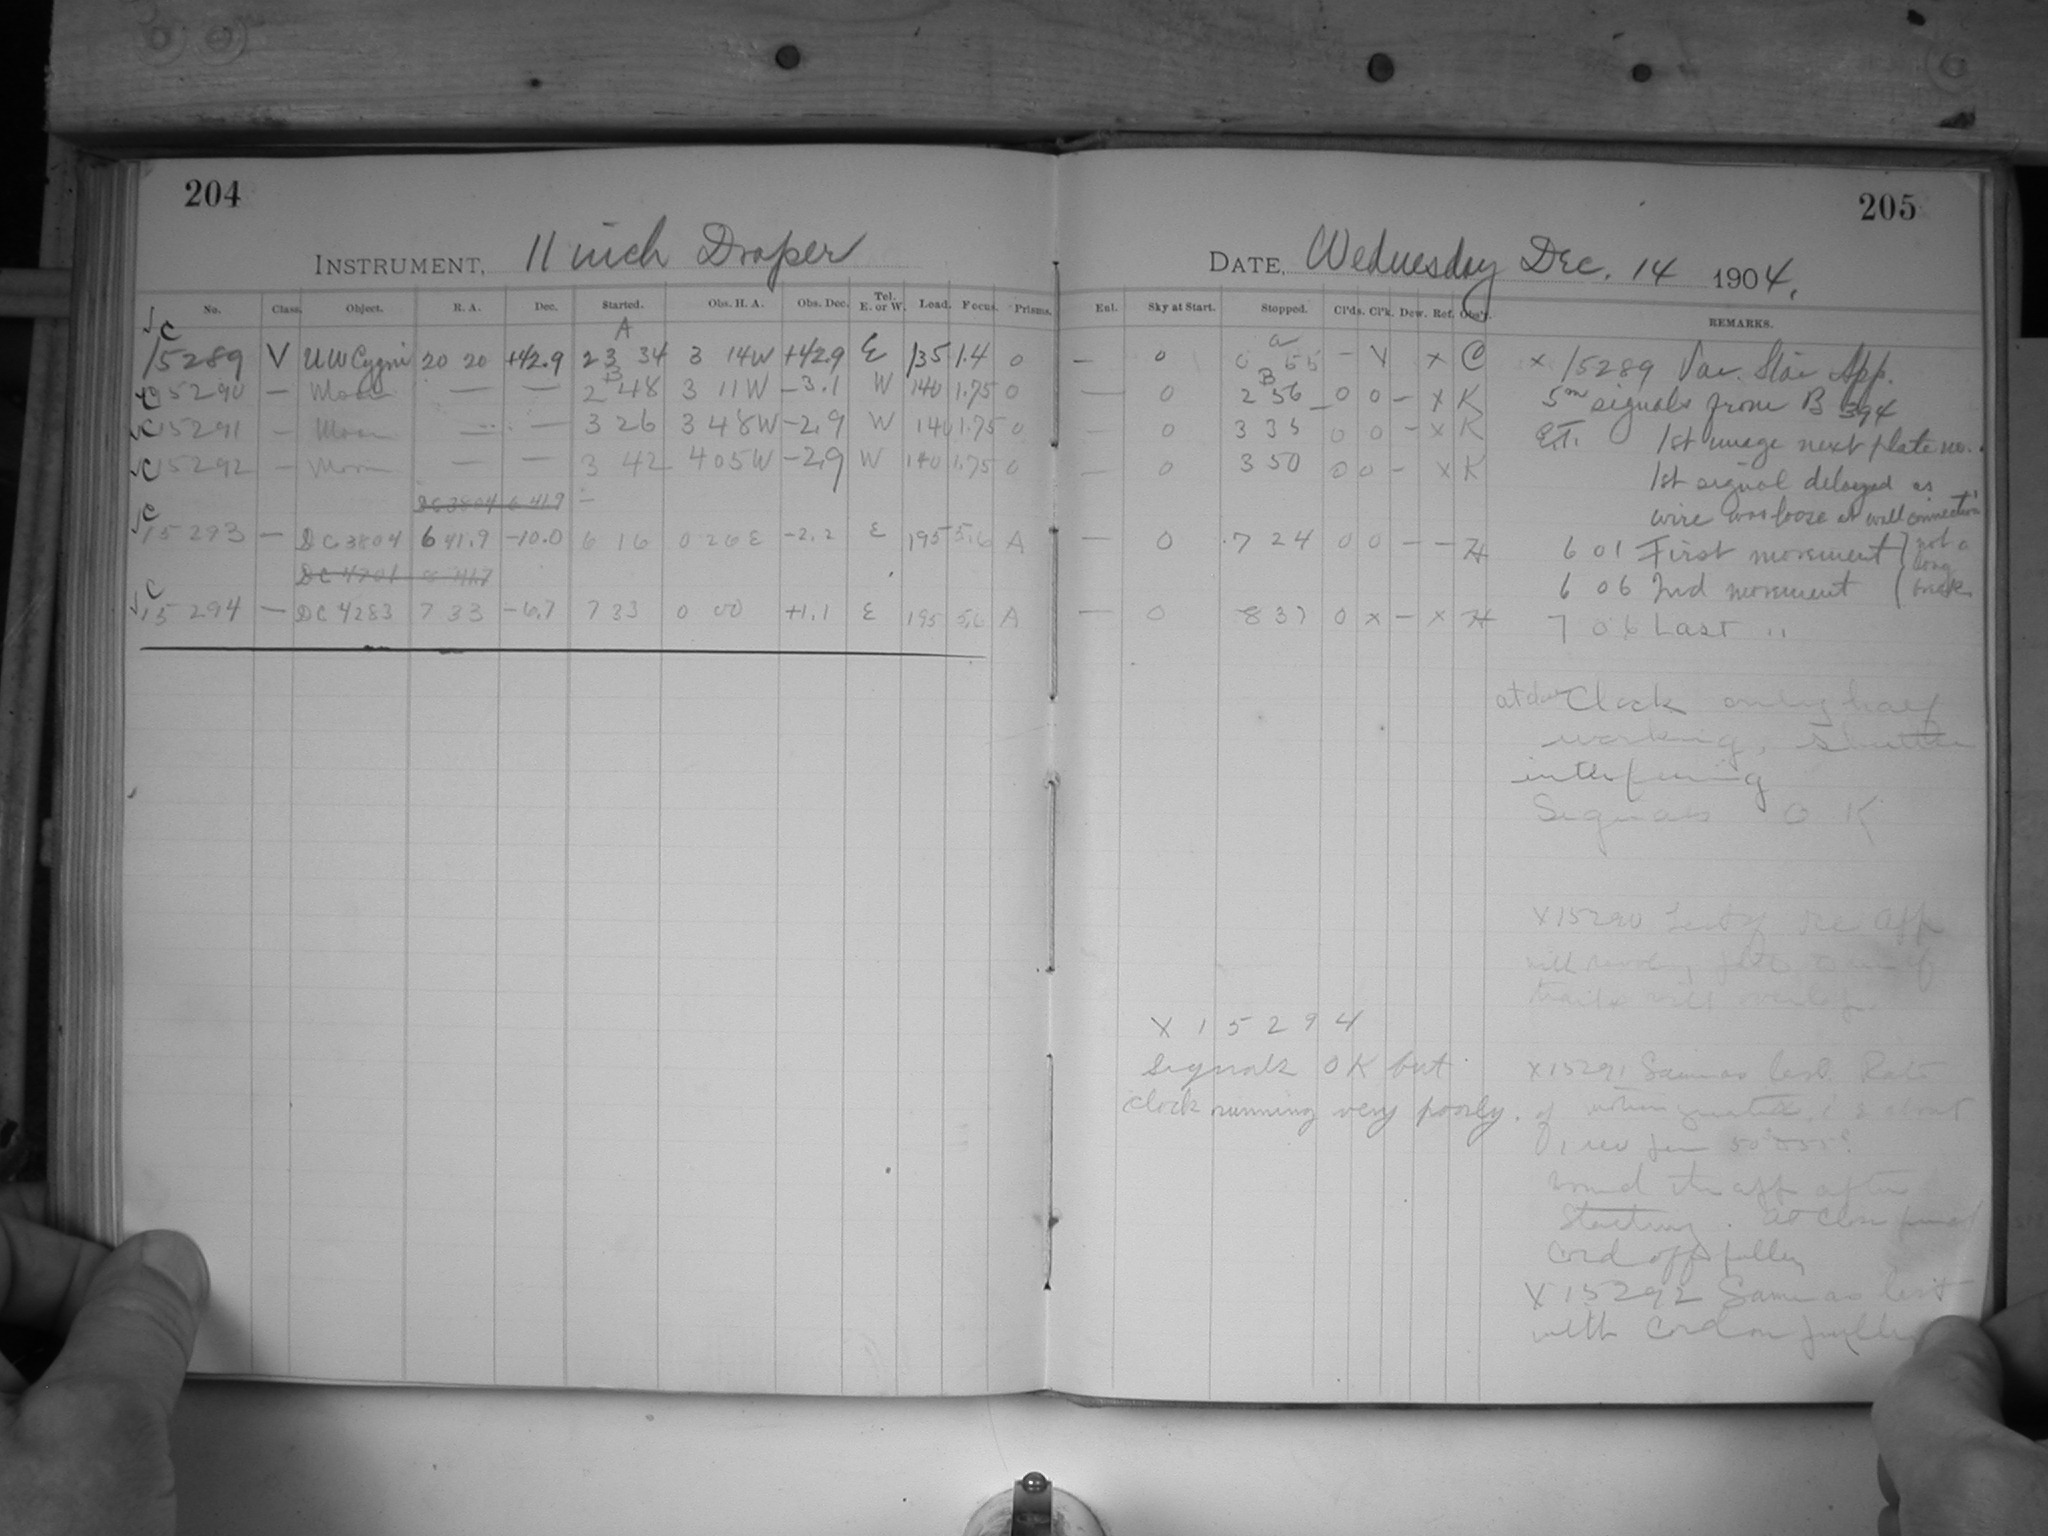 204
INSTRUMENT, 11 inch Draper
No. Class. Object. R. A. Dec. Started. Obs. H. A. Obs. Dec. Tel. E. or W. Lead. Focus. Prisms.
A
C 15289 V UW Cygni 20 20 +42.9 23 34 3 14W +42.9 E 135 1.4 0
B
C 15290 — Moon — — 2 48 3 11W -3.1 W 140 1.75 0
C 15291 — Moon — — 3 26 3 48W -2.9 W 140 1.75 0
C 15292 — Moon — — 3 42 4 05W -2.9 W 140 1.75 0
DC 3804 6 41.9 —
C 15293 — DC 3804 6 41.9 -10.0 6 16 0 26 E -2.2 E 195 5.6 A
C 15294 — DC 4283 7 33 -6.7 7 33 0 00 +1.1 E 195 5.6 A
205
DATE, Wednesday Dec. 14 1904.
Enl. Sky at Start. Stopped. Cl'ds. Cl'k. Dew. Ref. Obs'r. REMARKS.
a
— 0 0 55 — V x C x 15289 Var. Star App.
B
— 0 2 56 0 0 — x K 5m signals from B 394
— 0 3 35 0 0 — x K E.T. 1st image next plate no.
— 0 3 50 0 0 — x K 1st signal delayed as
wire was loose at wall connection
— 0 7 24 0 0 — — H 6 01 First movement } not a long
6 06 2nd movement break
— 0 8 37 0 x — x H 7 06 Last "
Clock only half
working, shutter
interfering
Signals O K
X 15290 Test of
trails will
X 15294
Signals OK but
clock running very poorly.
X 15291 Same as last. Rate
of motion
1 rev per
after
starting. At close found
Cord off pulley
X 15292 Same as last
with Cord on pulley